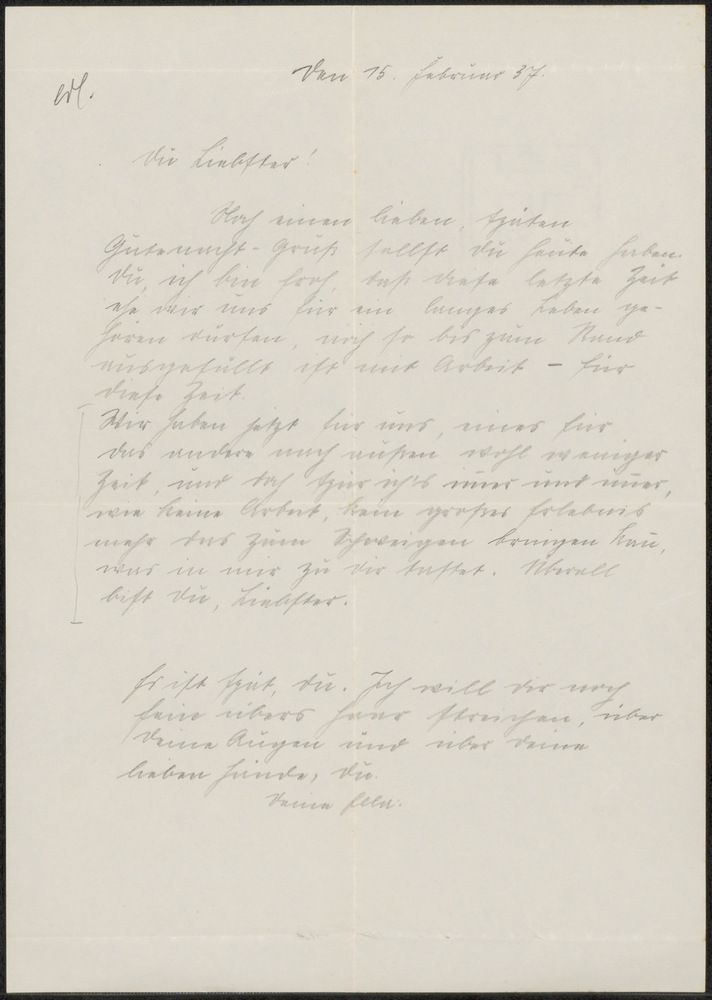 Den 15. Februar 37.
erl.
Du Liebster!
Noch einen lieben, späten
Gutenacht-Gruß sollst Du heute haben.
Du, ich bin froh, daß diese letzte Zeit
ehe wir uns für ein langes Leben ge-
hören dürfen, noch so bis zum Rand
ausgefüllt ist mit Arbeit – für
diese Zeit.
Wir haben jetzt für uns, eines für
das andere nach außen wohl weniger
Zeit, und doch spür ich's immer und immer,
wie keine Arbeit, kein großes Erlebnis
mehr das zum Schweigen bringen kann,
was in mir zu Dir tastet. Überall
bist Du, Liebster.
Es ist spät, Du. Ich will Dir noch
fein übers Haar streichen, über
Deine Augen und über Deine
lieben Hände, Du.
Deine Ella.